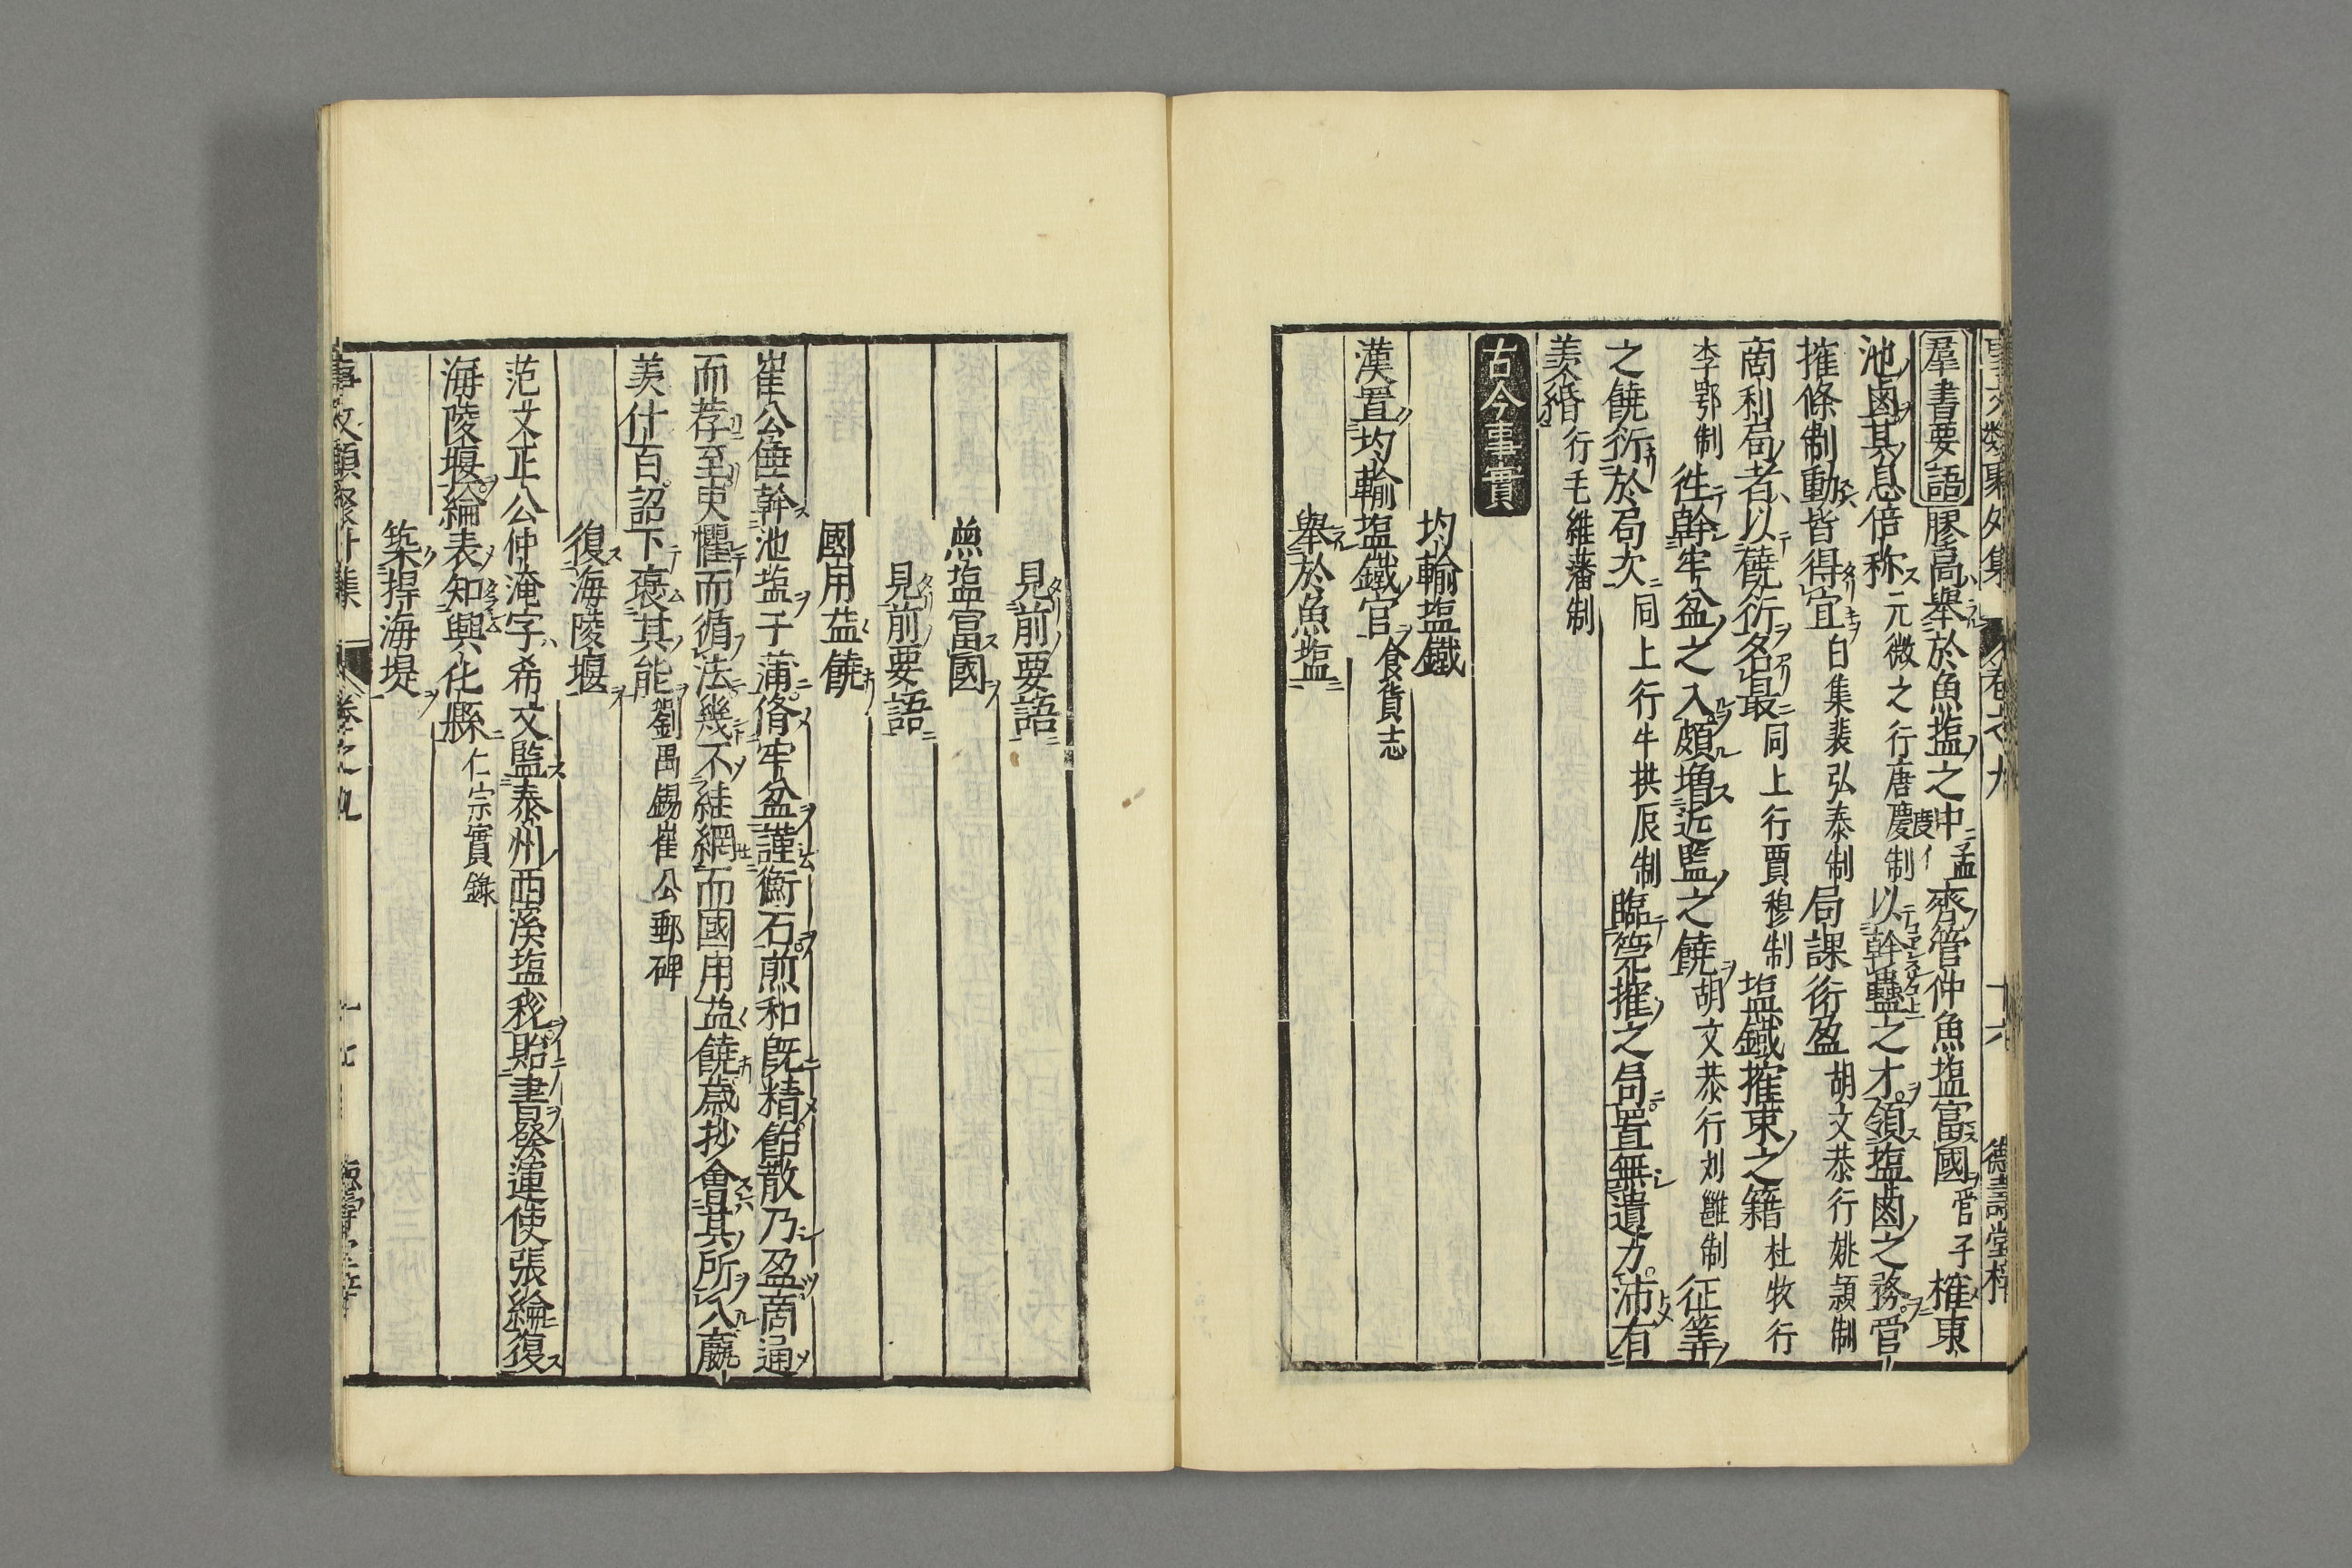 羣書要語膠鬲舉於魚塩之中孟齊管仲魚塩富國管子榷東
池鹵其息倍称元微之行唐慶制以幹蠱之才領塩鹵之務官
搉條制動皆得宜白集裴弘泰制局課衍盈胡文恭行姚頴制
商利局者以饒衍名最同上行賈穆制塩鐵搉束之籍杜牧行
李鄂制徃幹牢盆之入頗増近監之饒胡文恭行刘雝制征筭
之饒衍於局次同上行牛拱辰制臨筦搉之局置無遺力沛有
羡緡行毛維藩制
古今事實
均輸塩鐵
漢置均輸塩鐵官食貨志
舉於魚塩
見前要語
魚塩富國
見前要語
國用益饒
崔公倕幹池塩于蒲脩牢盆謹衡石煎和既精飴散乃盈商通
而荐至吏懼而循法幾不絓網而國用益饒歳抄會其所入贏
羡什百詔下褒其能劉禹錫崔公郵碑
復海陵堰
范文正公仲淹字希文監泰州西溪塩秋貽書發運使張綸復
海陵堰綸表知興化縣仁宗實錄
築捍海堤